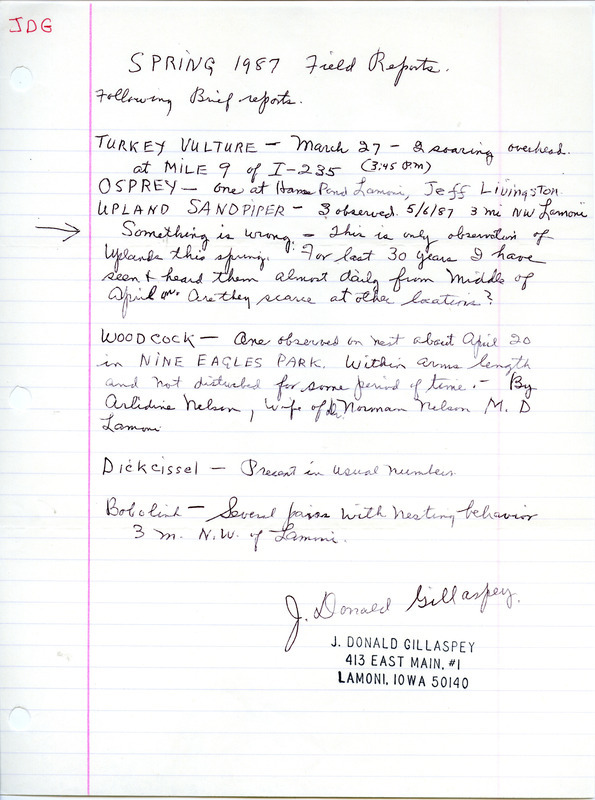 JDG
SPRING 1987 Field Reports.
Following Brief reports.
TURKEY VULTURE - March 27 - 2 soaring overhead.
at MILE 9 of I-235 (3:45 PM)
OSPREY - one at Home Pond Lamoni, Jeff Livingston.
UPLAND SANDPIPER - 3 observed 5/6/87 3 mi NW Lamoni
Something is wrong. - This is only observation of
Uplands this spring. For last 30 years I have
seen & heard them almost daily from middle of
April on. Are they scarce at other locations?
WOODCOCK - One observed on nest about April 20
in NINE EAGLES PARK. Within arms length
and not disturbed for some period of time. - By
Arlidine Nelson, wife of Dr. Norman Nelson M. D
Lamoni
Dickcissel - Present in usual numbers
Bobolink - Several pairs with nesting behavior
3 m. N.W. of Lamoni.
J. Donald Gillaspey.
J. DONALD GILLASPEY
413 EAST MAIN, #1
LAMONI, IOWA 50140